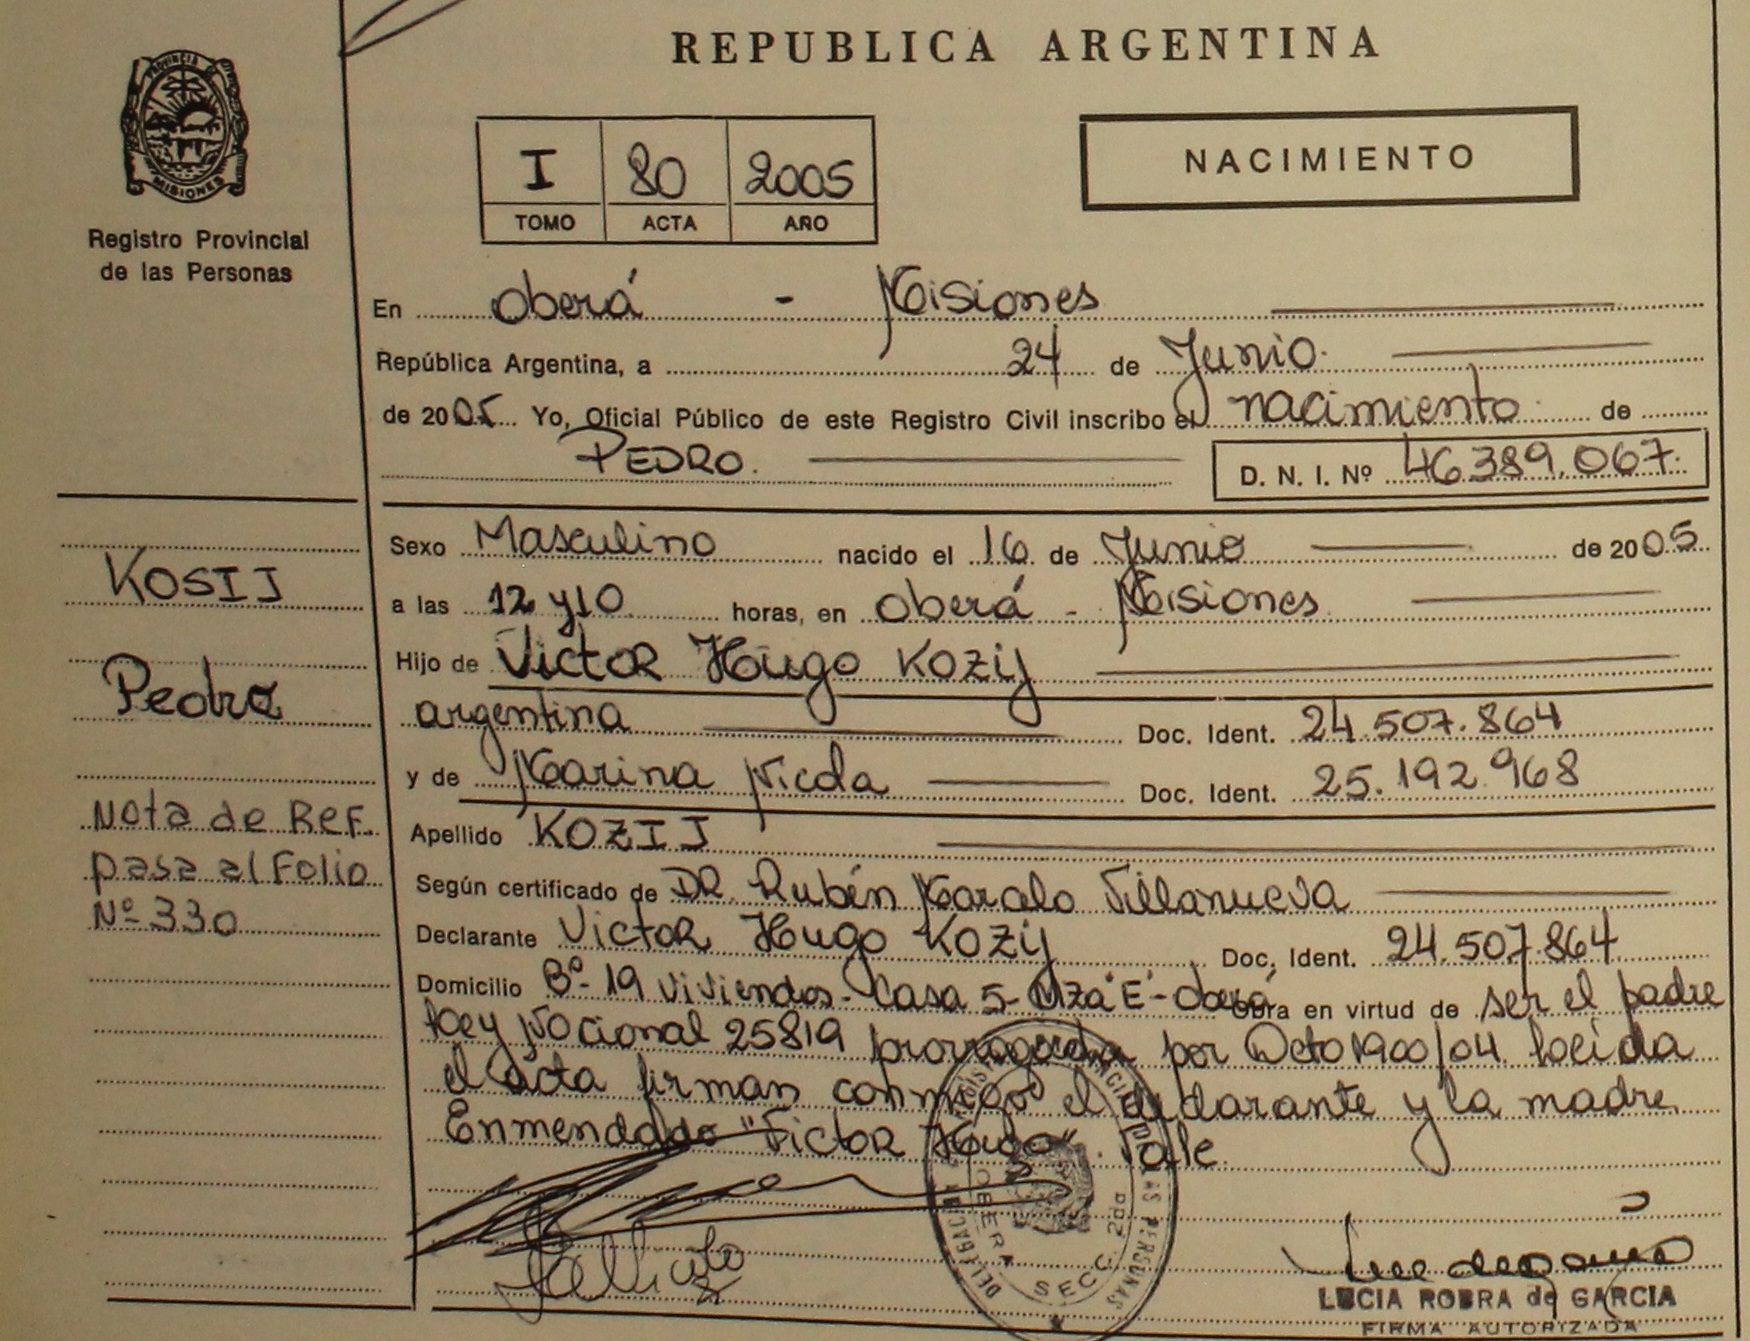 REPUBLICA ARGENTINA
PROVINCIA DE
MISIONES
Registro Provincial
de las Personas
I 80 2005
TOMO ACTA AÑO
NACIMIENTO
En Oberá - Misiones
República Argentina, a 24 de Junio
de 2005 Yo, Oficial Público de este Registro Civil inscribo el nacimiento de
PEDRO.
D. N. I. Nº 46.389.067.
KOSIJ
Pedro
Nota de Ref.
pasa al Folio
Nº 330
Sexo Masculino nacido el 16 de Junio de 2005
a las 12 y10 horas, en Oberá - Misiones
Hijo de Victor Hugo Kozij
argentina Doc. Ident. 24.507.864
y de Karina Nicola Doc. Ident. 25.192.968
Apellido KOZIJ
Según certificado de DR. Rubén Marcelo Villanueva
Declarante Victor Hugo Kozij Doc. Ident. 24.507.864
Domicilio Bº 19 Viviendas - Casa 5 - Mza "E" - Oberá Obra en virtud de ser el padre
Ley Nacional 25819 prorrogada por Dcto 1900/04. Leida
el acta firman conmigo el declarante y la madre
Enmendado "Victor Hugo". Vale
SECC. 2da
LUCIA ROBRA de GARCIA
FIRMA AUTORIZADA